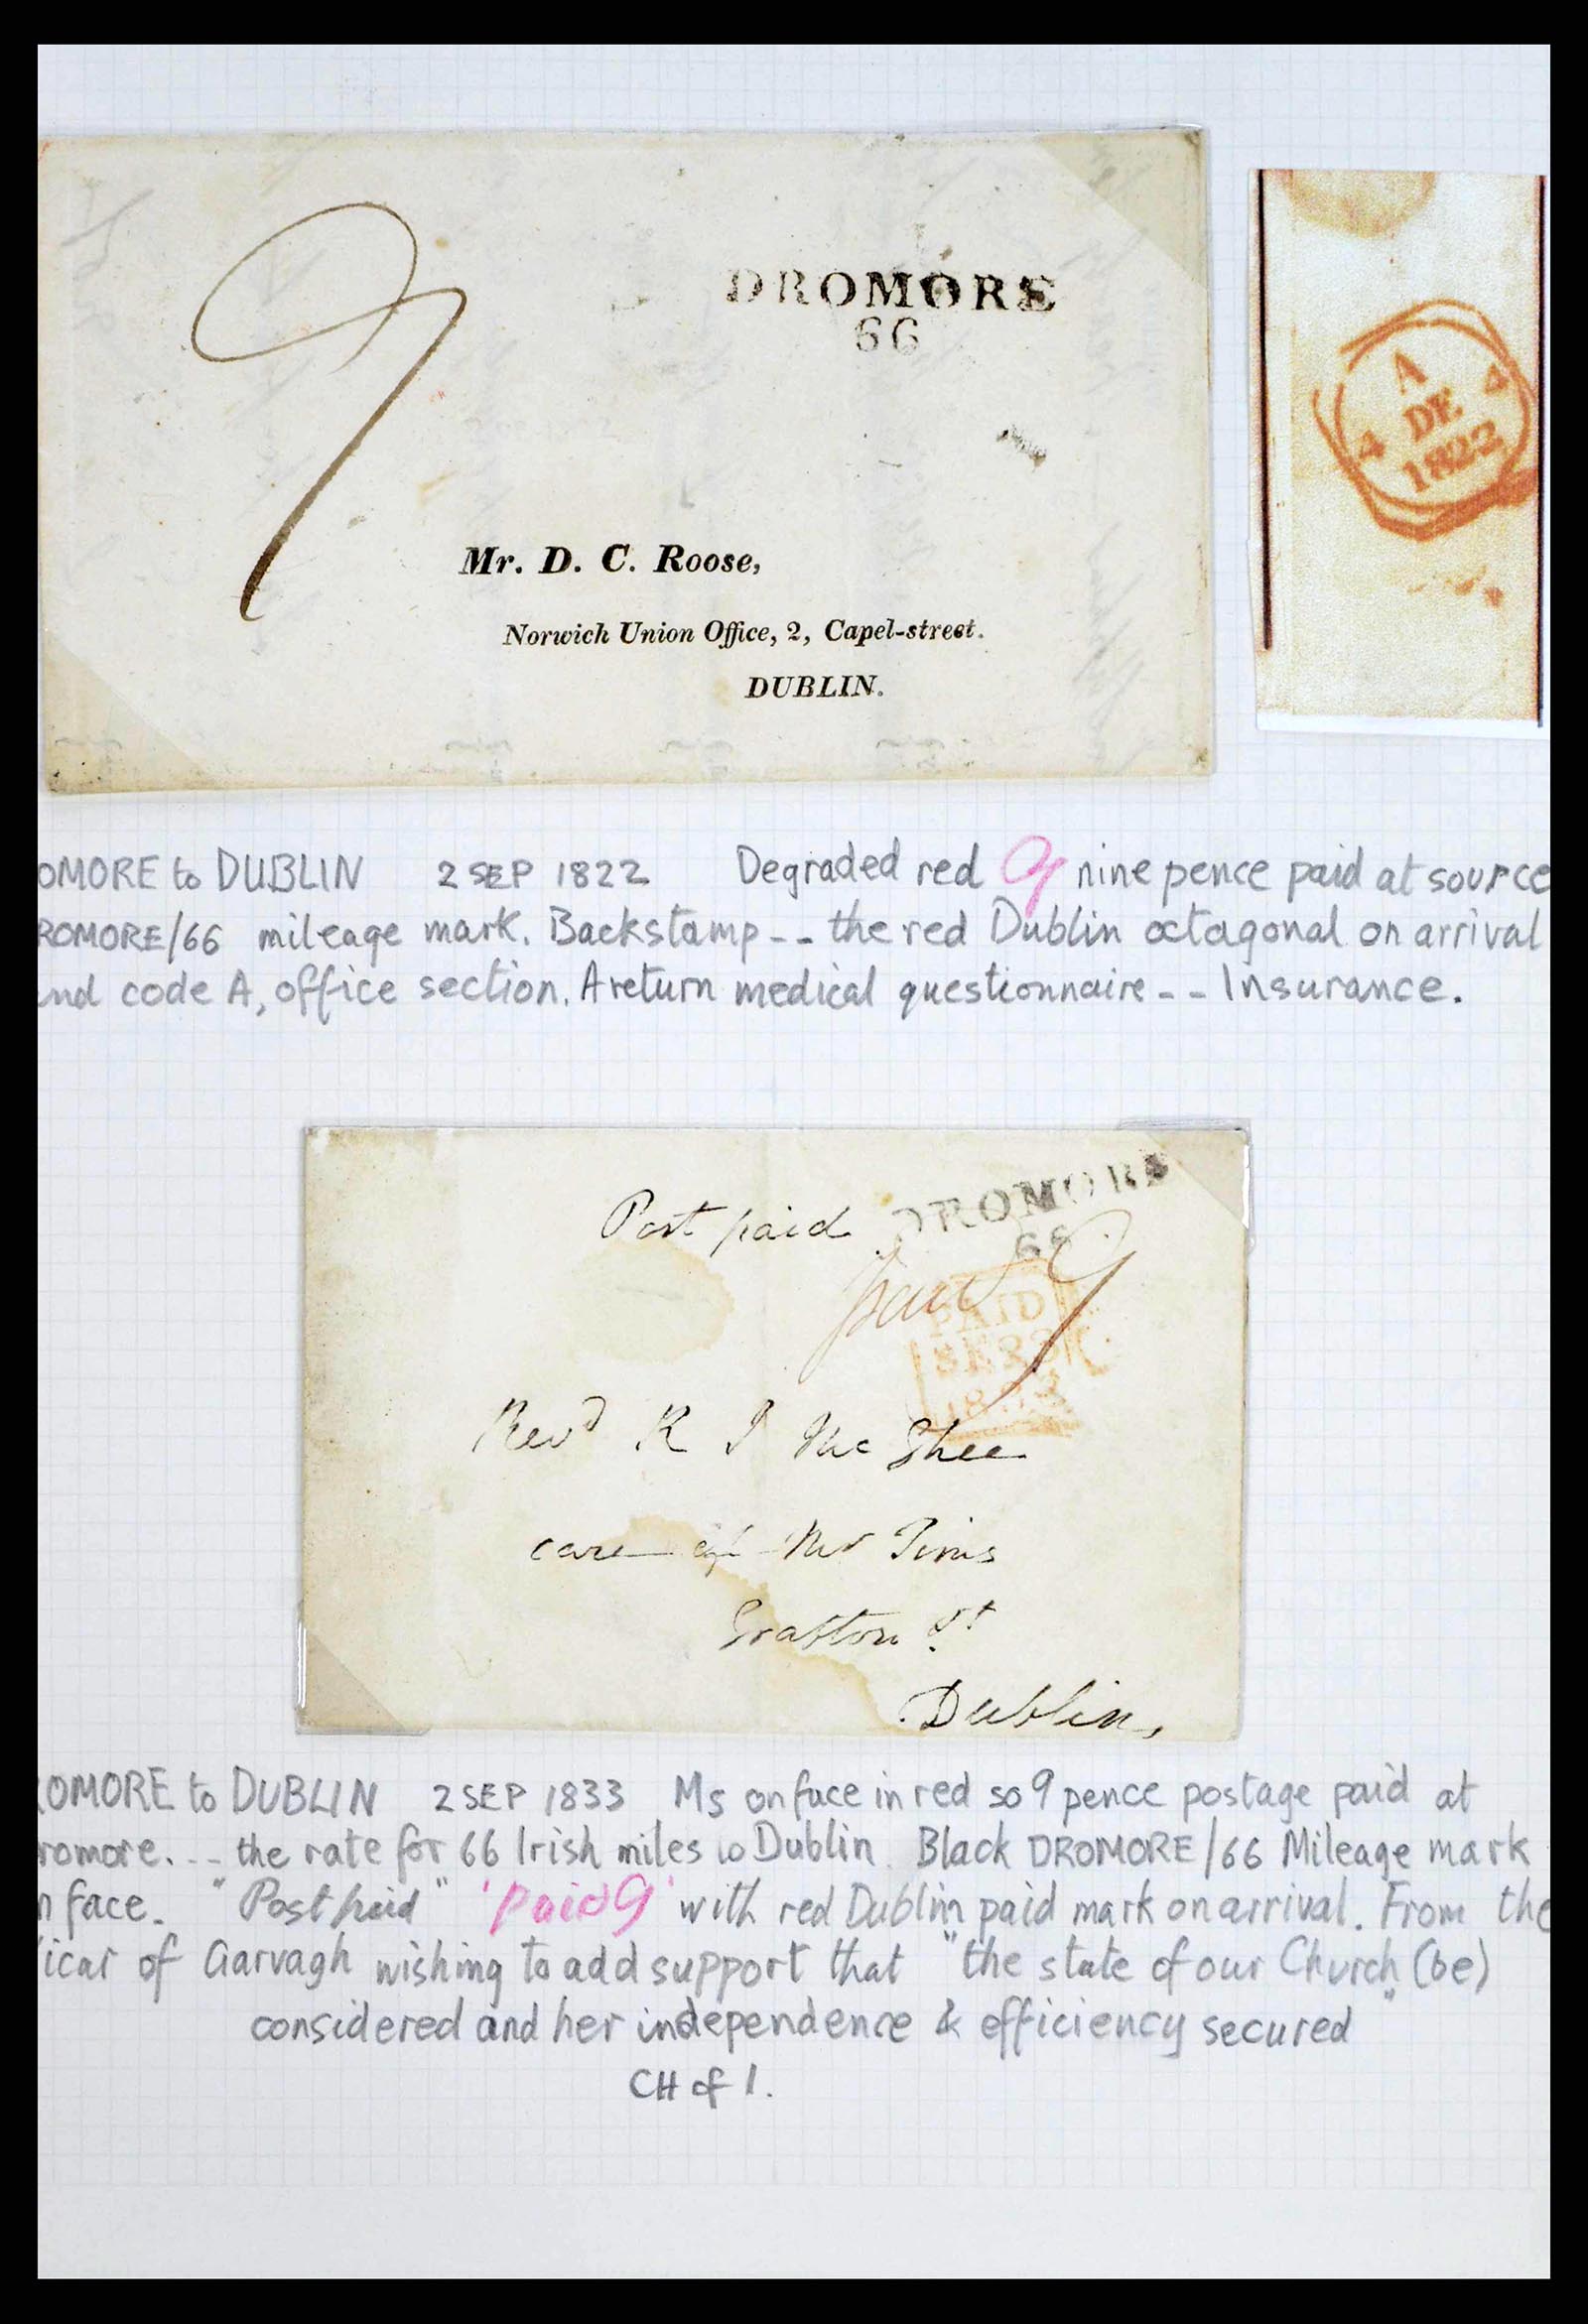 9
DROMORE
66
Mr. D. C. Roose,
Norwich Union Office, 2, Capel-street.
DUBLIN.
A
4 DE 4
1822
OMORE to DUBLIN 2 SEP 1822 Degraded red 9 nine pence paid at source
ROMORE/66 mileage mark. Backstamp -- the red Dublin octagonal on arrival
and code A, office section. A return medical questionnaire -- Insurance.
Post paid DROMORE
66
paid 9
PAID
SE
Revd R J McGhee
care of Mr Tims
Grafton St
Dublin,
ROMORE to DUBLIN 2 SEP 1833 Ms on face in red so 9 pence postage paid at
romore. -- the rate for 66 Irish miles to Dublin. Black DROMORE/66 Mileage mark
n face. "Post paid" 'Paid 9' with red Dublin paid mark on arrival. From the
icar of Garvagh wishing to add support that "the state of our Church (be)
considered and her independence & efficiency secured"
CH of I.